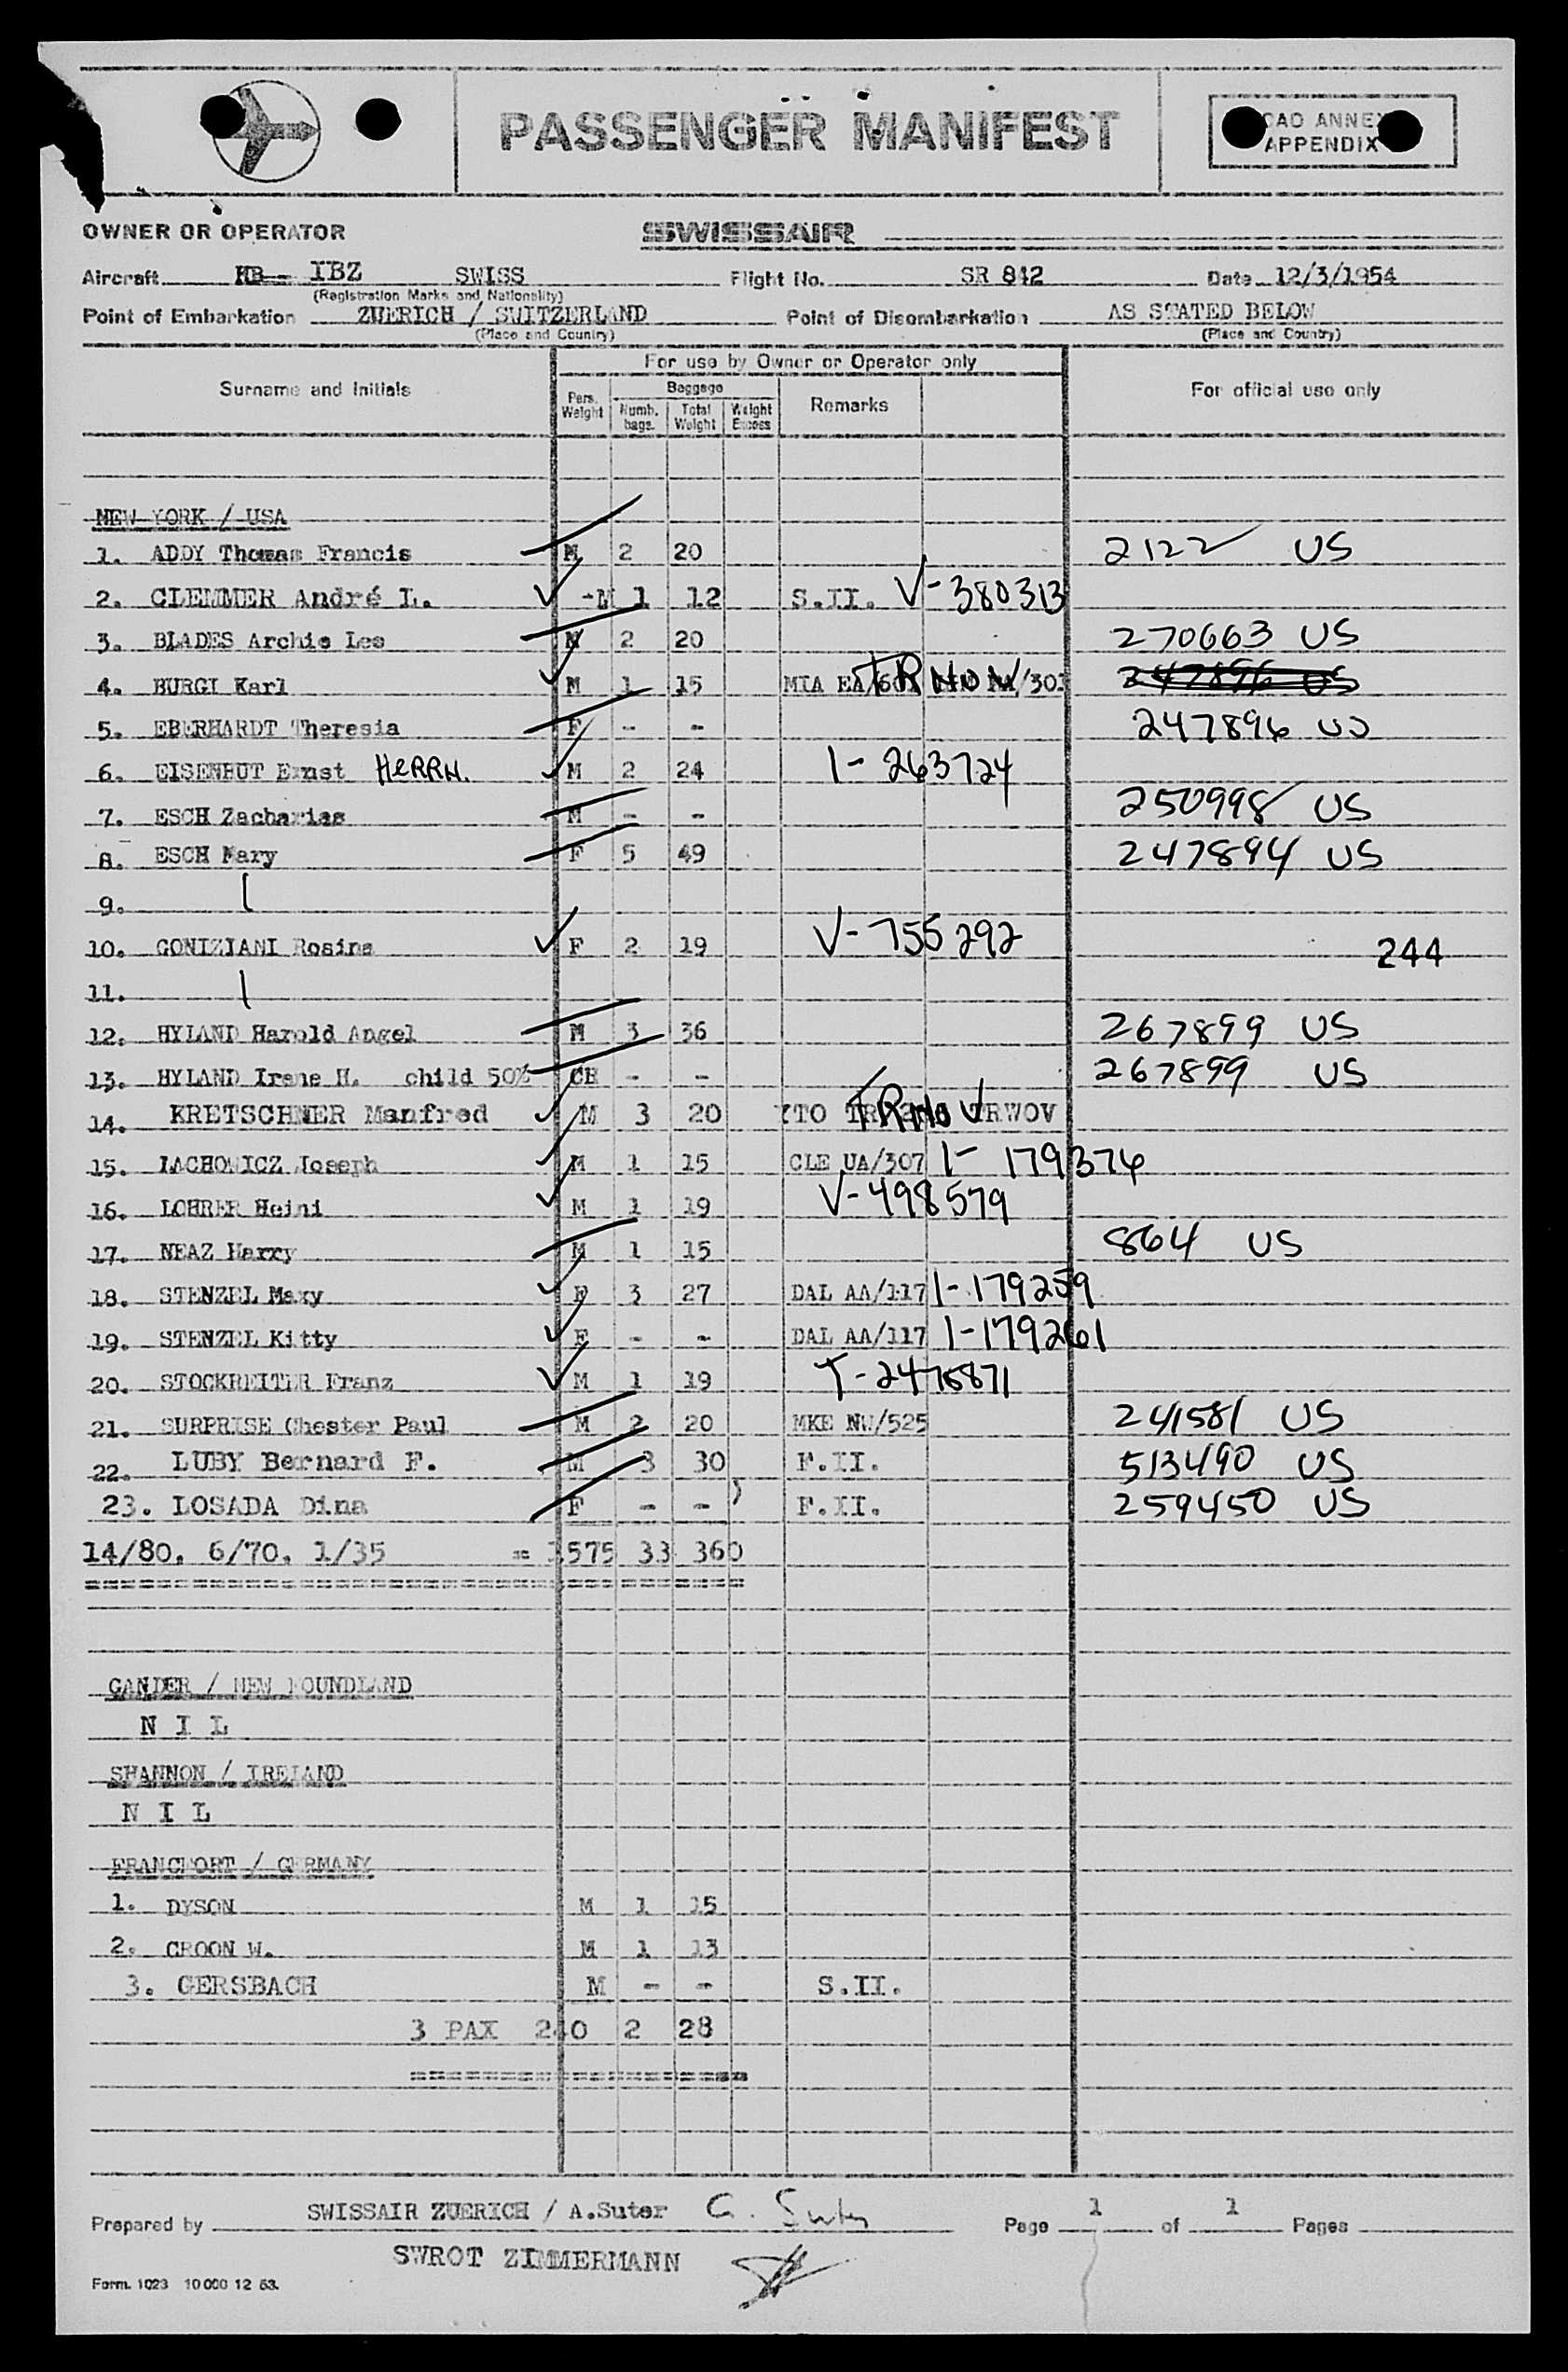 PASSENGER MANIFEST
CAO ANNEX
APPENDIX
OWNER OR OPERATOR SWISSAIR
Aircraft HB- IBZ SWISS Flight No. SR 842 Date 12/3/1954
(Registration Marks and Nationality)
Point of Embarkation ZUERICH / SWITZERLAND Point of Disembarkation AS STATED BELOW
(Place and Country) (Place and Country)
For use by Owner or Operator only
Surname and Initials Pers. Weight Baggage Numb. bags. Total Weight Weight Excess Remarks For official use only
NEW YORK / USA
1. ADDY Thomas Francis M 2 20 2122 US
2. CLEMMER André L. -M 1 12 S.II. V-380313
3. BLADES Archie Lee M 2 20 270663 US
4. BURGI Karl M 1 15 MIA EA/601 TRWOV /301 247896 US
5. EBERHARDT Theresia F - - 247896 US
6. EISENHUT Ernst HERRN. M 2 24 I-263724
7. ESCH Zacharias M - - 250998 US
8. ESCH Mary F 5 49 247894 US
9.
10. GONIZIANI Rosina F 2 19 V-755292 244
11.
12. HYLAND Harold Angel M 3 36 267899 US
13. HYLAND Irene H. child 50% CH - - 267899 US
14. KRETSCHNER Manfred M 3 20 YTO TRWOV TRWOV
15. LACHOWICZ Joseph M 1 15 CLE UA/307 I-179376
16. LOHRER Heini M 1 19 V-498579
17. NEAZ Harry M 1 15 864 US
18. STENZEL Mary F 3 27 DAL AA/117 I-179259
19. STENZEL Kitty F - - DAL AA/117 I-179261
20. STOCKREITER Franz M 1 19 T-2475871
21. SURPRISE Chester Paul M 2 20 MKE NW/525 241581 US
22. LUBY Bernard F. M 3 30 F.II. 513490 US
23. LOSADA Dina F - - F.II. 259450 US
14/80, 6/70, 1/35 = 1575 33 360
GANDER / NEW FOUNDLAND
N I L
SHANNON / IRELAND
N I L
FRANCFORT / GERMANY
1. DYSON M 1 15
2. CROON W. M 1 13
3. GERSBACH M - - S.II.
3 PAX 240 2 28
Prepared by SWISSAIR ZUERICH / A.Suter G. Suter Page 1 of 1 Pages
SWROT ZIMMERMANN
Form. 1023 10 000 12 53.